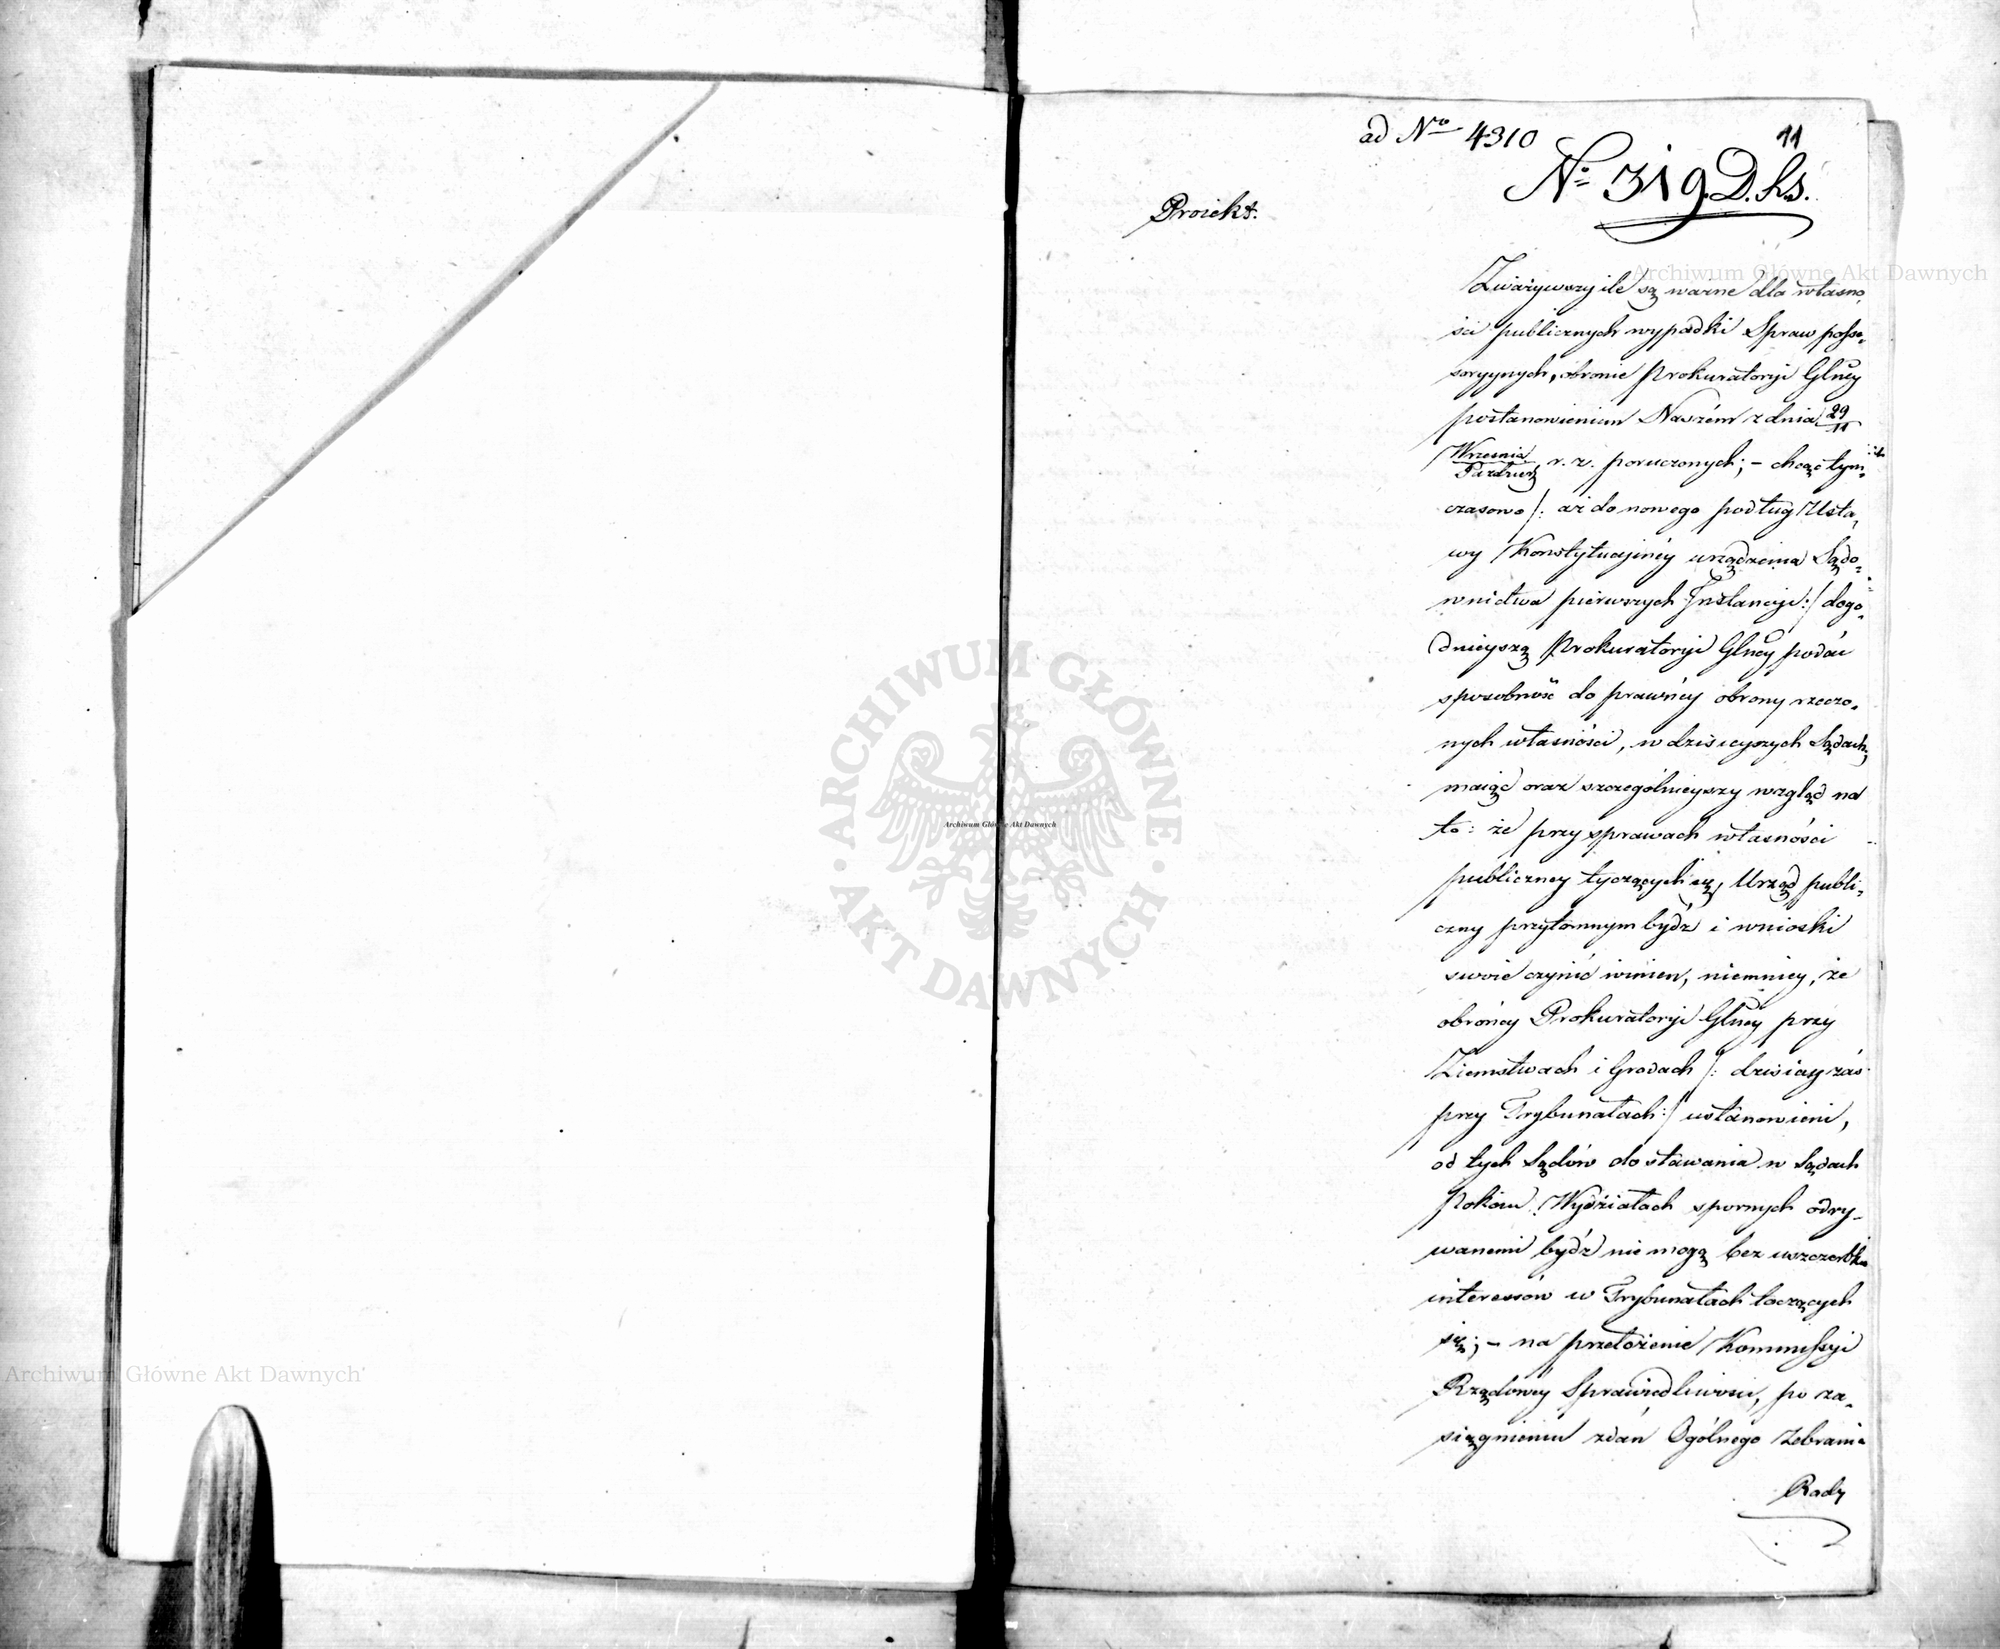 ad Nro 4310
11
No 319. D. K. S.
Proiekt.
Zważywszy ile są ważne dla własno-
ści publicznych wypadki Spraw posse-
soryynych, obronie Prokuratoryi Glney
postanowieniem Naszém z dnia 29/11
Września/Paździer r. z. poruczonych; – chcąc tym-
czasowo /: aż do nowego podług Usta-
wy Konstytucyinéy urządzenia Sądo-
wnictwa pierwszych Instancyi :/ dogo-
dnieyszą Prokuratoryi Glney podać
sposobność do prawnéy obrony rzeczo-
nych własności, w dzisieyszych Sądach,
maiąc oraz szczególnieyszy wzgląd na
to: że przy sprawach własności
publiczney tyczących się, Urząd publi-
czny przytomnym bydź i wnioski
swoie czynić winien, niemniey, że
obróńcy Prokuratoryi Glney przy
Ziemstwach i Grodach /: dzisiay zaś
przy Trybunałach :/ ustanowieni,
od tych Sądów do stawania w Sądach
Pokoiu Wydziałach spornych odry-
wanemi bydź nie mogą bez uszczerbku
interessów w Trybunałach toczących
się; – na przełożenie Kommissyi
Rządowéy Sprawiedliwości, po za-
siągnieniu zdań Ogólnego Zebrania
Rady
Archiwum Główne Akt Dawnych
ARCHIWUM GŁÓWNE · AKT DAWNYCH ·
Archiwum Główne Akt Dawnych
Archiwum Główne Akt Dawnych